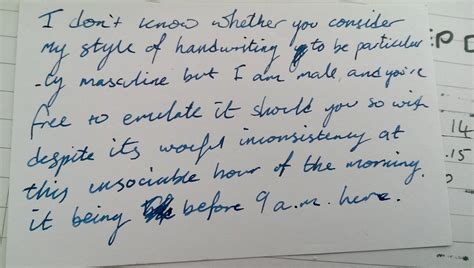 I don't know whether you consider
my style of handwriting to be particular
-ly masculine but I am male, and you're
free to emulate it should you so wish
despite its woeful inconsistency at
this unsociable hour of the morning,
it being before 9 a.m. here.
EP D
14
.15